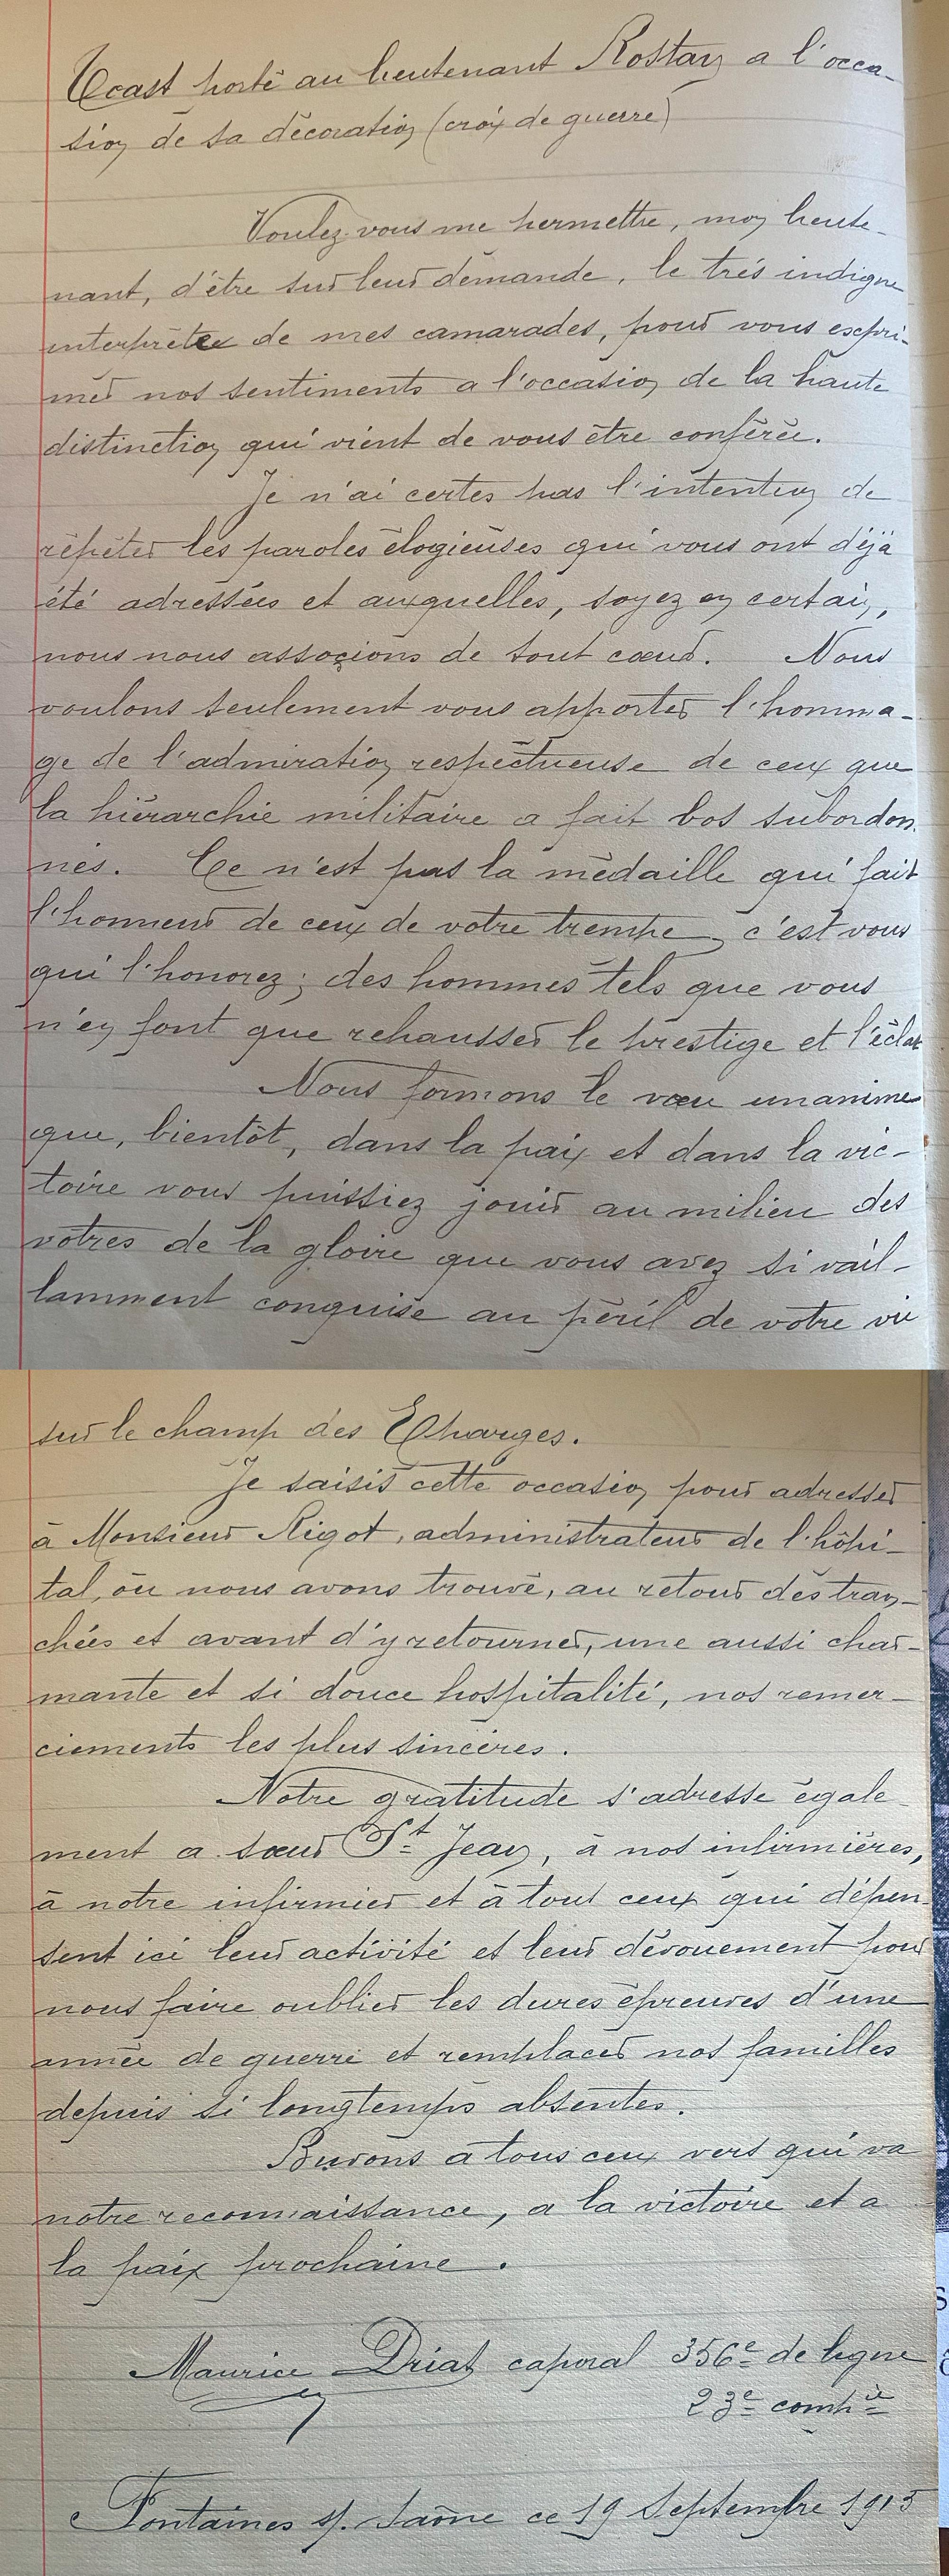 Toast porté au lieutenant Rostan a l'occa-
sion de sa décoration (croix de guerre)
Voulez vous me permettre, mon lieute-
nant, d'être sur leur demande, le très indigne
interprète de mes camarades, pour vous expri-
mer nos sentiments a l'occasion de la haute
distinction qui vient de vous être conférée.
Je n'ai certes pas l'intention de
répéter les paroles élogieuses qui vous ont déjà
été adressées et auxquelles, soyez en certain,
nous nous associons de tout cœur. Nous
voulons seulement vous apporter l'homma-
ge de l'admiration respectueuse de ceux que
la hiérarchie militaire a fait vos subordon-
nés. Ce n'est pas la médaille qui fait
l'honneur de ceux de votre trempe, c'est vous
qui l'honorez ; des hommes tels que vous
n'en font que rehausser le prestige et l'éclat
Nous formons le vœu unanime
que, bientôt, dans la paix et dans la vic-
toire vous puissiez jouir au milieu des
vôtres de la gloire que vous avez si vail-
lamment conquise au péril de votre vie
sur le champ des Charges.
Je saisis cette occasion pour adresser
à Monsieur Rigot, administrateur de l'hôpi-
tal, où nous avons trouvé, au retour des tran-
chées et avant d'y retourner, une aussi char-
mante et si douce hospitalité, nos remer-
ciements les plus sincères.
Notre gratitude s'adresse égale-
ment a sœur St Jean, à nos infirmières,
à notre infirmier et à tout ceux qui dépen-
sent ici leur activité et leur dévouement pour
nous faire oublier les dures épreuves d'une
année de guerre et remplacer nos familles
depuis si longtemps absentes.
Buvons a tous ceux vers qui va
notre reconnaissance, a la victoire et a
la paix prochaine.
Maurice Driat caporal 356e de ligne
23e compie
Fontaines s/. Saône ce 19 Septembre 1915